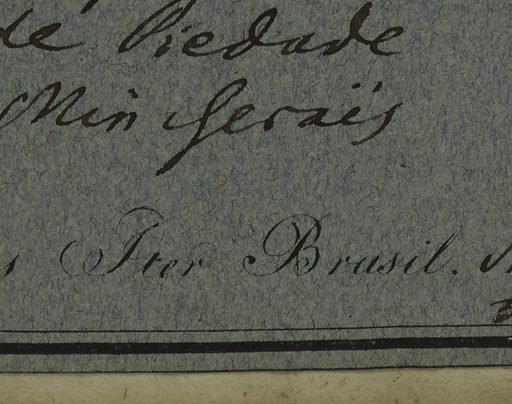 de Piedade
Min Geraës
s Iter Brasil.